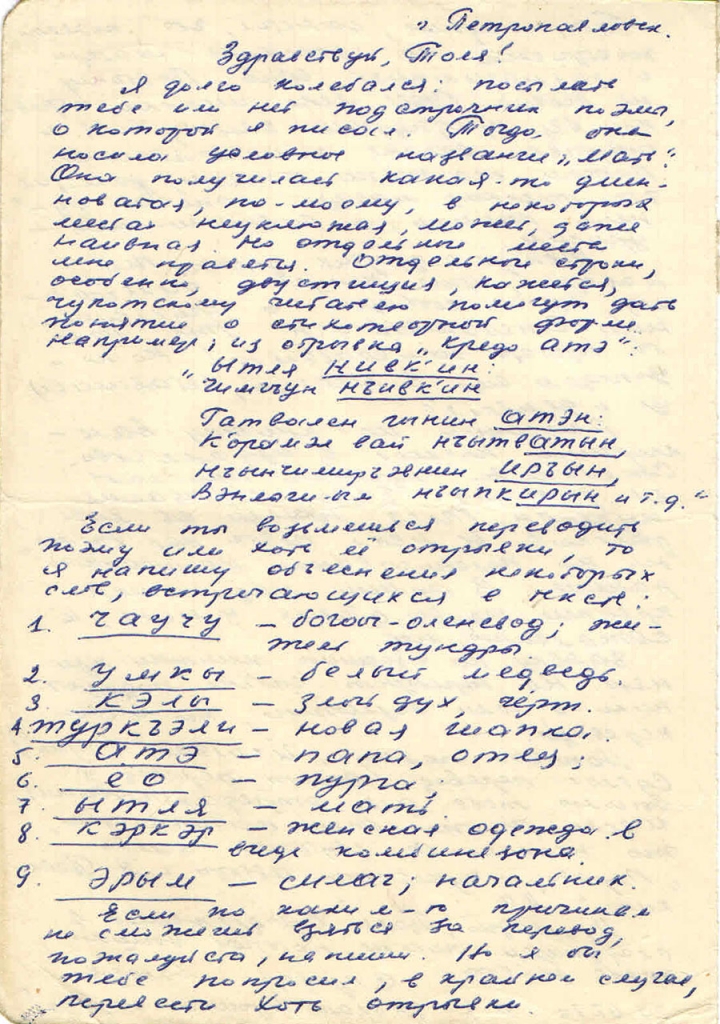 г. Петропавловск.
Здравствуй, Толя!
Я долго колебался: посылать
тебе или нет подстрочник поэмы,
о которой я писал. Тогда она
носила условное название „Мать".
Она получилась какая-то длин-
новатая, по-моему, в некоторых
местах неуклюжая, может, даже
наивная. Но отдельные места
мне нравятся. Отдельные строки,
особенно, двустишия, кажется,
чукотскому читателю помогут дать
понятие о стихотворной форме.
Например, из отрывка „Кредо атэ":
„Ытля нивк'ин:
Чимгъун нъивк'ин
Гатвален гынин атэн:
К'орамэл вай нъытватын,
Нъынчимгъэвнин иръын,
Вэнлыги-ым нъыпкирын и т.д."
Если ты возьмешься переводить
поэму или хоть её отрывки, то
я напишу объеснения некоторых
слов, встречающихся в тексте:
1. чаучу – богач-оленевод; жи-
тель тундры
2. умкы – белый медведь.
3 кэлы – злой дух, чёрт.
4. туркъэли – новая шапка.
5 атэ – папа, отец;
6 ео – пурга;
7 ытля – мать
8 кэркэр – женская одежда в
виде комбинезона.
9. эрым – силач; начальник.
Если по каким-то причинам
не сможешь взяться за перевод,
пожалуйста, напиши. Но я бы
тебе попросил, в крайнем случае,
перевести хоть отрывки.